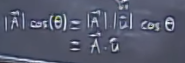 |A⃗| cos(θ) = |A⃗| |u⃗| cos θ
= A⃗ · û